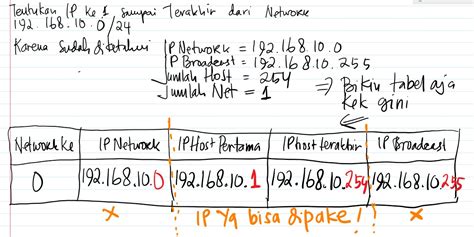 Tentukan IP ke 1 sampai Terakhir dari Network
192.168.10.0/24
Karena sudah diketahui
IP Network = 192.168.10.0
IP Broadcast = 192.168.10.255
Jumlah Host = 254
Jumlah Net = 1
⇒ Bikin tabel aja
kek gini
Network ke | IP Network | IP Host Pertama | IP host terakhir | IP Broadcast
0 | 192.168.10.0 | 192.168.10.1 | 192.168.10.254 | 192.168.10.255
x IP Yg bisa dipake! x